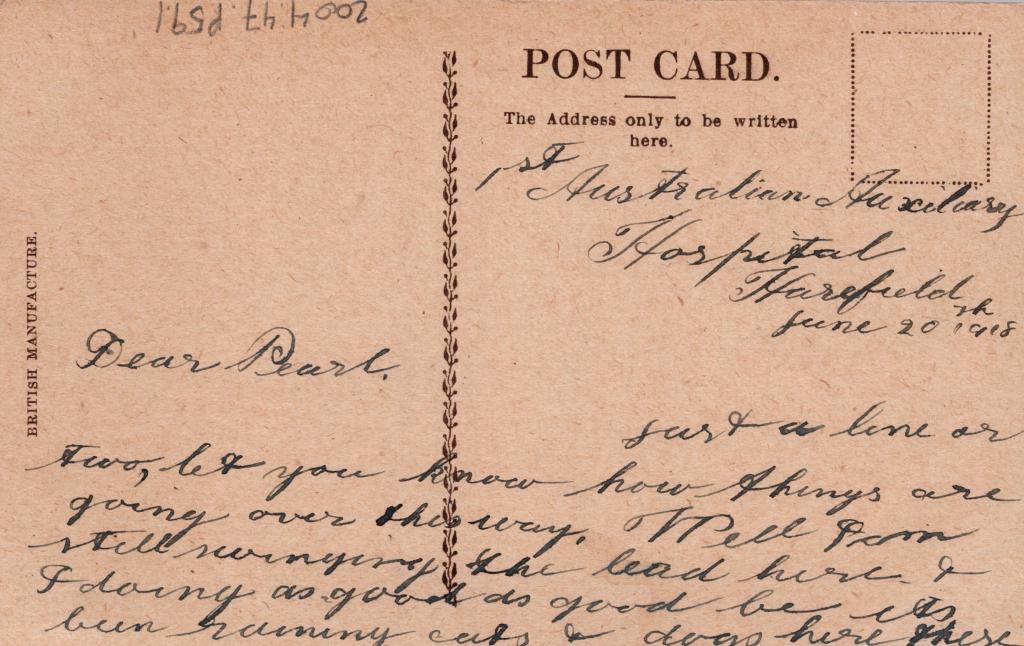 2004.47.P59.1
POST CARD.
The Address only to be written
here.
BRITISH MANUFACTURE.
1st Australian Auxiliary
Hospital
Harefield
June 20th 1918
Dear Pearl.
just a line or
two, let you know how things are
going over this way. Well I am
still swinging the lead here &
I doing as good as good be its
been raining cats & dogs here these